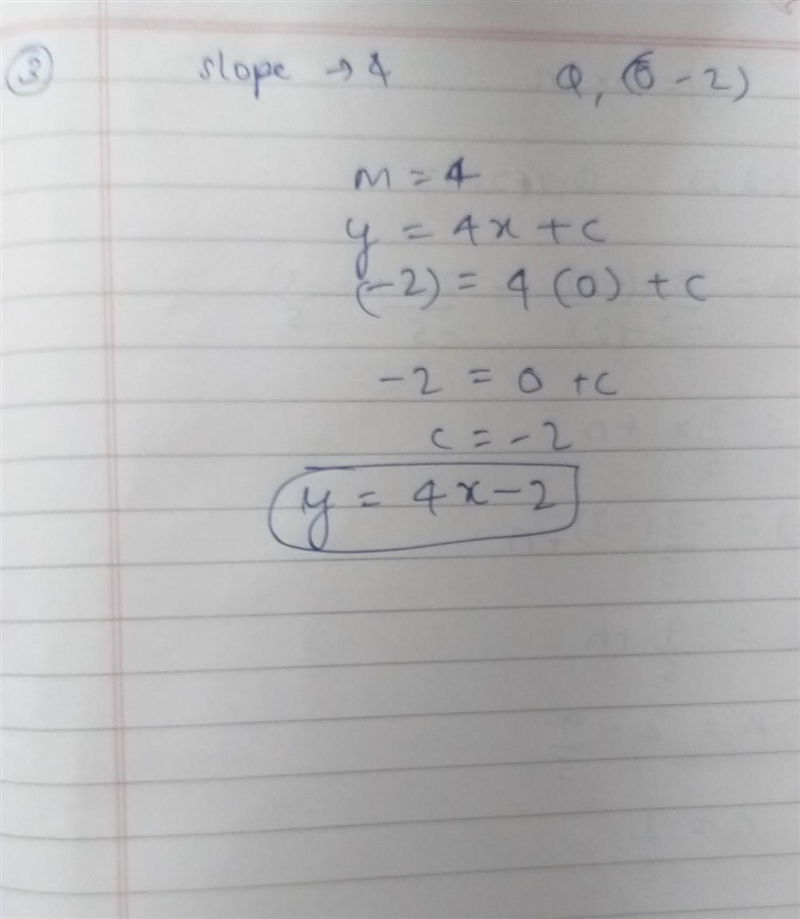 ③ slope → 4 Q, (0 - 2)
m = 4
y = 4x + c
(-2) = 4 (0) + c
-2 = 0 + c
c = -2
y = 4x - 2